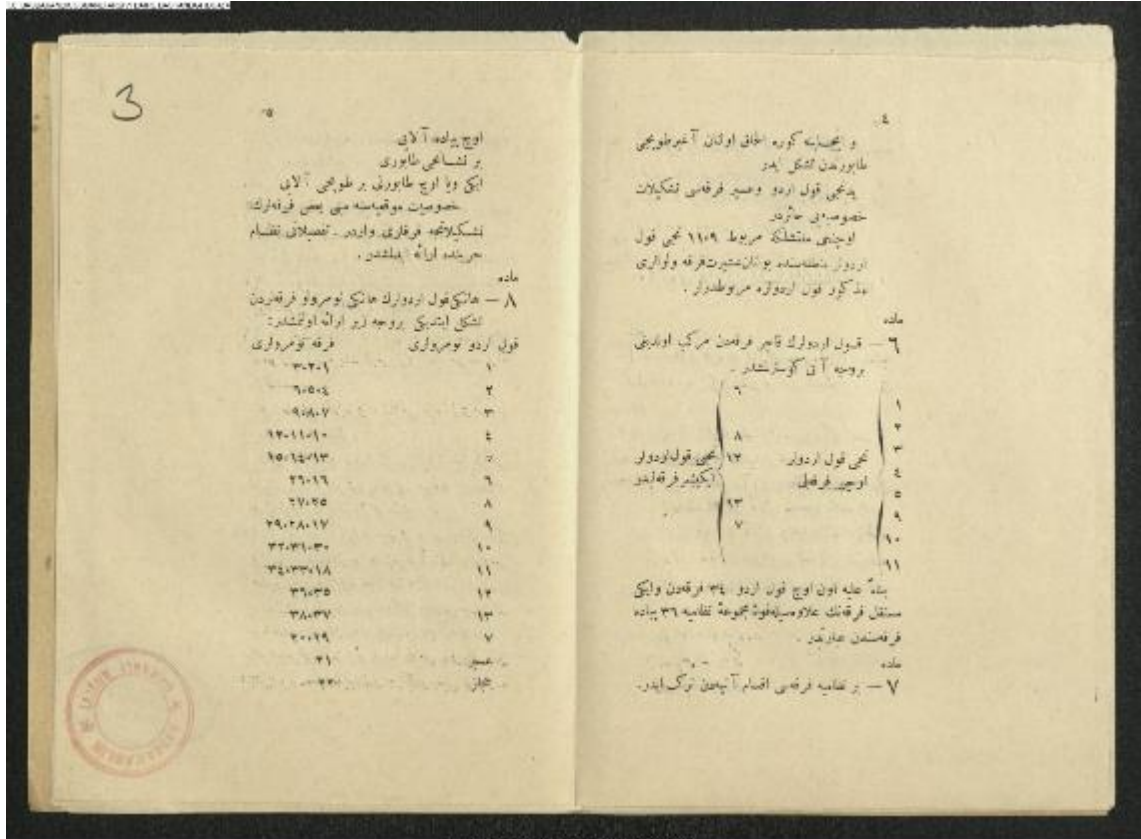 ٤
و ايجابنه كوره الحاق اولنان آغير طوپجى
طابورندن تشكل ايدر
يدنجى قول اردو وعسير فرقه‌سى تشكيلات
خصوصيه‌يى حائزدر
اوچنجى مفتشلكه مربوط ٩،١١ نجى قول
اردولر منطقه‌سنده بولنان عشيرت فرقه ولوالرى
مذكور قول اردولره مربوطدرلر .
ماده
٦ — قول اردولرك قاچر فرقه‌دن مركب اولديغى
بروجه آتى كوسترلمشدر .
١
٢
٣
٤
٥
٩
١٠
١١
نجى قول اردولر
اوچر فرقه‌لى
٦
٨
١٢
١٣
٧
نجى قول اردولر
ايكيشر فرقه‌ليدر
بناءً عليه اون اوچ قول اردو ٣٤ فرقه‌دن وايكى
مستقل فرقه‌نك علاوه‌سيله قوۀ مجموعۀ نظاميه ٣٦ پياده
فرقه‌سندن عبارتدر .
ماده
٧ — بر نظاميه فرقه‌سى اقسام آتيه‌دن تركب ايدر.
3
٥
اوچ پياده آلايى
بر نشانجى طابورى
ايكى ويا اوچ طابورلى بر طوپجى آلايى
خصوصيت موقعيه‌سنه مبنى بعض فرقه‌لرك
تشكيلاتجه فرقلرى واردر . تفصيلاتى نظام
حربنده ارائه ايدلمشدر .
ماده
٨ — هانكى قول اردولرك هانكى نومرولو فرقه‌لردن
تشكل ايتديكى بروجه زير ارائه اولنمشدر:
قول اردو نومرولرى فرقه نومرولرى
١ ١،٢،٣
٢ ٤،٥،٦
٣ ٧،٨،٩
٤ ١٠،١١،١٢
٥ ١٣،١٤،١٥
٦ ١٦،٢٦
٨ ٢٥،٢٧
٩ ١٧،٢٨،٢٩
١٠ ٣٠،٣١،٣٢
١١ ١٨،٣٣،٣٤
١٢ ٣٥،٣٦
١٣ ٣٧،٣٨
٧ ١٩،٢٠
عسير ٢١
حجاز ٢٢